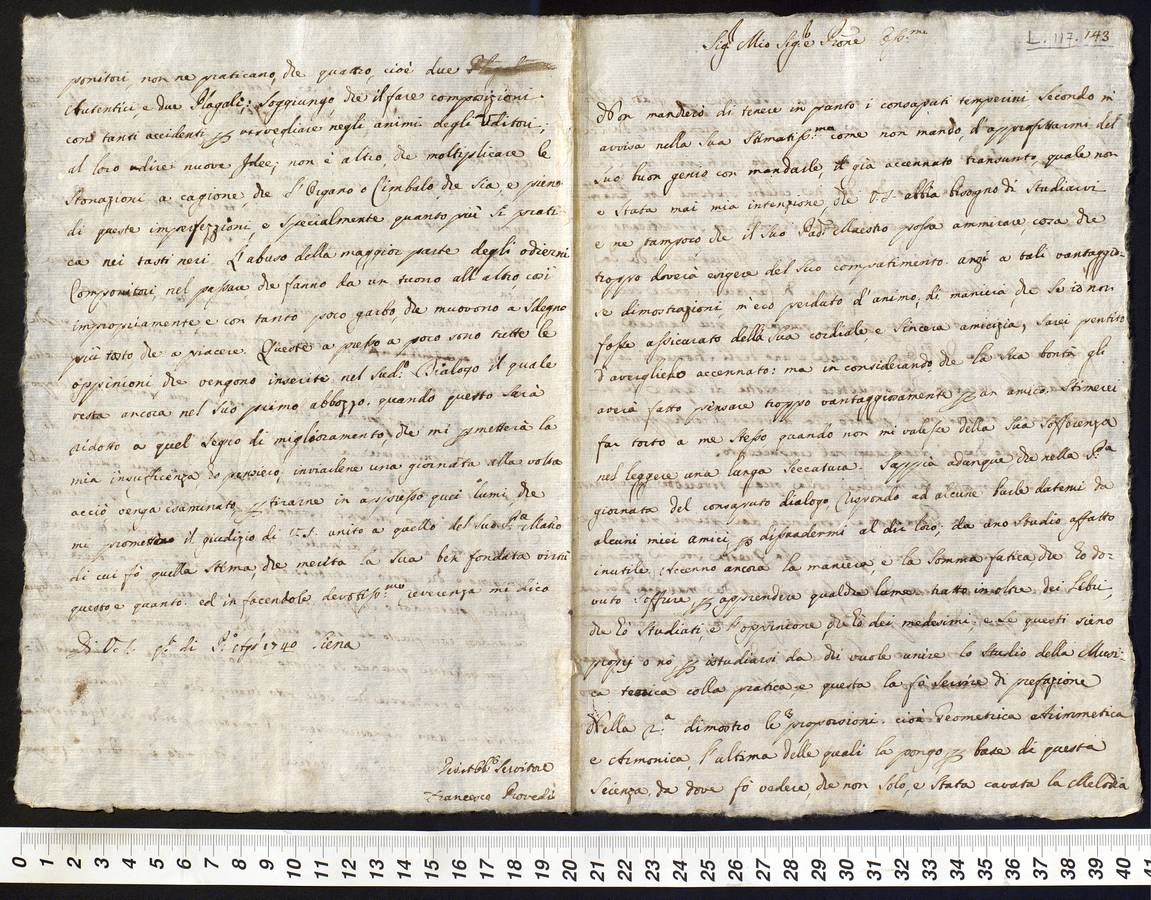 ponitori non ne praticano, che quattro, cioè due
Autentici, e due Plagali; Soggiungo, che il fare composizioni
con tanti accidenti p risvegliare negli animi degli Uditori,
al loro udire nuove Idee; non è altro, che moltiplicare le
Stonazioni a cagione, che l'Organo o Cimbalo, che sia, e pieno
di queste imperfezzioni, e specialmente quanto più si prati-
ca nei tasti neri. L'abuso della maggior parte degli odierni
Componitori, nel passare, che fanno da un tuono all'altro, così
impropriamente e con tanto poco garbo, che muovono a Sdegno
più tosto che a piacere. Queste a presso a poco sono tutte le
oppinioni che vengono inserite nel Sud.º Dialogo il quale
resta ancora nel Suo primo abbozzo. quando questo Sarà
ridotto a quel Segno di miglioramento, che mi pmetterà la
mia insufficenza ho pensiero, inviarlene una giornata alla volta
acciò venga esaminato, p tirarne in appresso quei lumi, che
mi promettono il giudizio di V.S. unito a quello del Suo Mastro
di cui fò quella Stima, che merita la Sua ben fondata virtù
questo e quanto. ed in facendole devotiss.mo reverenza mi dico
Di V.S. pº di 1740 Siena
Servitore
Francesco Provedi
L. 117. 143
Sigr Mio Sigre Prone
Non mancherò di tenere in pronto i consaputi temperini Secondo m'
avvisa nella Sua Stimatiss.ma come non mando, d'approfittarmi del
Suo buon genio con mandarle il già accennato transunto, quale non
e Stata mai mia intenzione, che V.S. abbia bisogno di Studiarvi
e ne tampoco che il Suo Padr Maestro possa ammirare, cosa che
troppo doverà esigere del Suo compatimento. anzi a tali vantaggio-
se dimostrazioni m'ero perduto d'animo, di maniera che Se io non
fosse assicurato della Sua cordiale, e Sincera amicizia, Sarei pentito
d'averglielo accennato: ma in considerando che la Sua bontà gli
averà fatto pensare troppo vantaggiosamente p un amico. Stimerei
far torto a me Stesso quando non mi valesse della Sua Sofferenza
nel leggere una lunga Seccatura. Sappia adunque che nella
giornata del consaputo dialogo Rispondo ad alcune burle datemi da
alcuni miei amici p dissuadermi al dir loro; da uno Studio affatto
inutile. Accenno ancora la maniera, e la Somma fatica, che hò do-
vuto Soffrire p apprendere qualche lume tratto in oltre dei Libri,
che hò Studiati e l'oppinione, che hò dei medesimi; e Se questi sieno
propri o no p istudiarsi da chi vuole unire lo Studio della Musi-
ca teorica colla pratica e questa la fò Servire di prefazione
Nella 2.a dimostro le 3 proporzioni. cioè Geometrica Arimmetica
e Armonica l'ultima delle quali la pongo p base di questa
Scienza, da dove fò vedere, che non Solo, e Stata cavata la Melodia